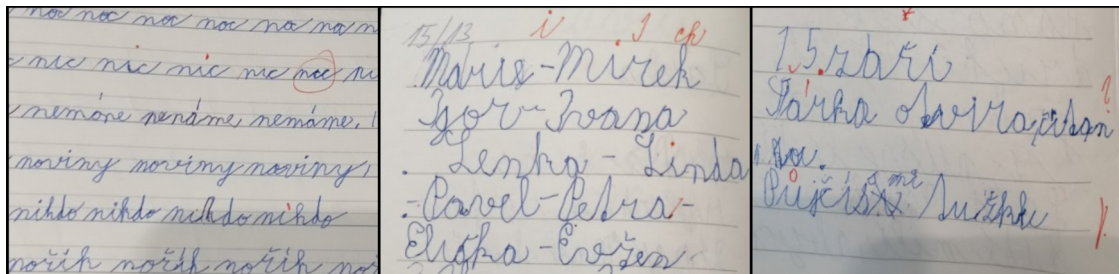 noc noc noc noc noc no n
nic nic nic nic noc ni
nemáme nenáme, nemáme,
noviny noviny noviny,
nikdo nikdo nikdo nikdo
nořík nořík nořík noř
15/13 i J ch
Marie-Mirek
Igor-Ivana
Lenka-Linda
Pavel-Petra-
Eliška-Evžen
15. září
Šárka otvírá
Půjčíš mi tužku